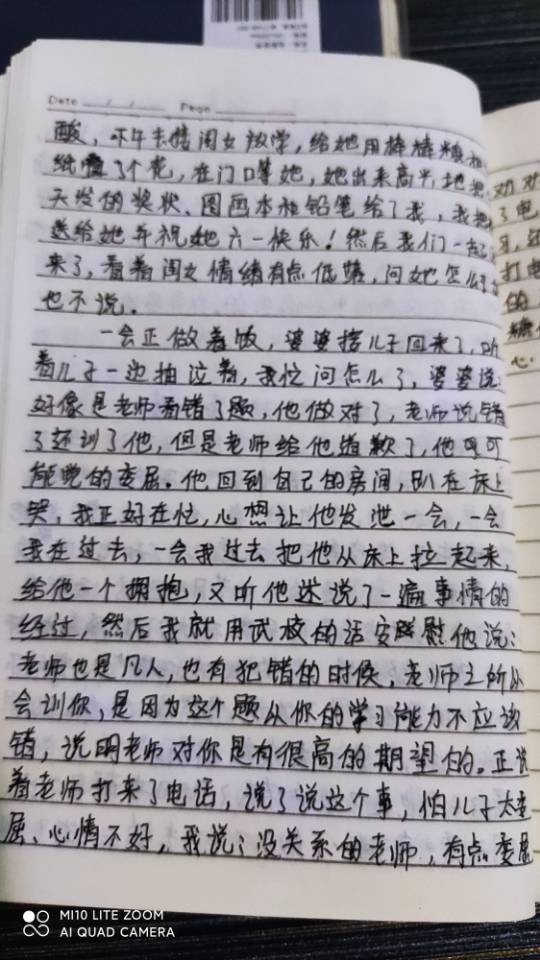 Date / / Page
酸，下午去接闺女放学，给她用棒棒糖和
纸叠了个花，在门口等她，她出来高兴地把
天发的奖状、图画本和铅笔给了我，我把
送给她并祝她六一快乐！然后我们一起
来了，看着闺女情绪有点低落，问她怎么了
也不说。
一会正做着饭，婆婆接儿子回来了，听
着儿子一边抽泣着，我忙问怎么了，婆婆说：
好像是老师看错了题，他做对了，老师说错
了还训了他，但是老师给他道歉了，他
能觉的委屈。他回到自己的房间，趴在床上
哭，我正好在忙，心想让他发泄一会，一会
我在过去，一会我过去把他从床上拉起来，
给他一个拥抱，又听他述说了一遍事情的
经过，然后我就用武校的话安慰他说：
老师也是凡人，也有犯错的时候，老师之所以
会训你，是因为这个题从你的学习能力不应该
错，说明老师对你是有很高的期望的。正说
着老师打来了电话，说了说这个事，怕儿子太委
屈、心情不好，我说：没关系的老师，有点委屈
MI10 LITE ZOOM
AI QUAD CAMERA